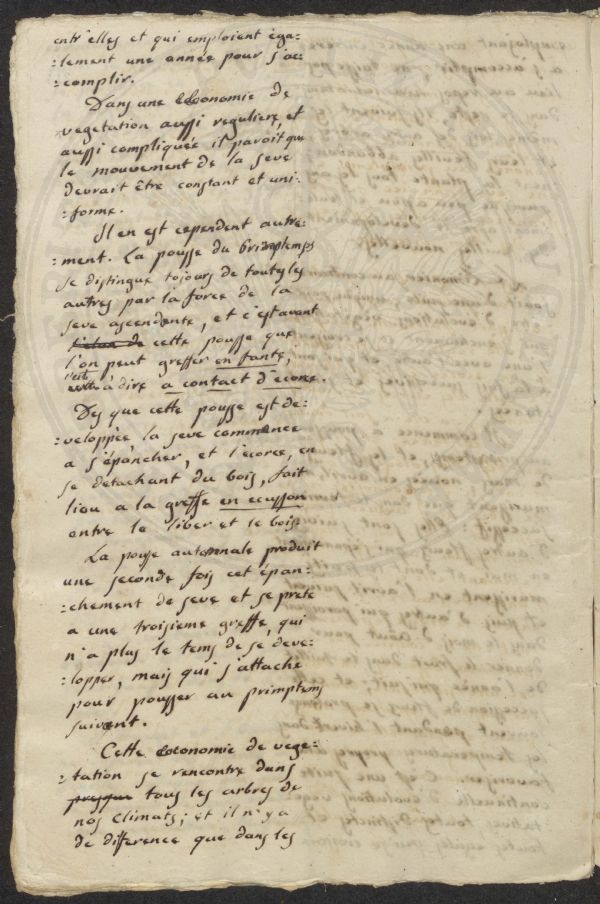 entr'elles et qui emploient éga=
=lement une année pour s'ac=
=complir.
Dans une oeconomie de
vegetation aussi reguliere, et
aussi compliquée il paroit que
le mouvement de la seve
devrait être constant et uni=
=forme.
Il en est cependent autre=
=ment. La pousse du
se distingue tojours de toutes les
autres par la force de la
seve ascendente, et c'est avant
cette pousse que
l'on peut greffer en fante,
c'est à dire a contact d'ecorce.
Des que cette pousse est de=
=veloppée, la seve commence
a s'épancher, et l'écorce, en
se detachant du bois, fait
lieu a la greffe en ecusson
entre le liber et le bois.
La pousse automnale produit
une seconde fois cet épan=
=chement de seve et se prete
a une troisieme greffe, qui
n'a plus le tems de se deve=
=lopper, mais qui s'attache
pour pousser au primptems
suivant.
Cette oeconomie de vege=
=tation se rencontre dans
presque tous les arbres de
nos climats; et il n'y a
de difference que dans les